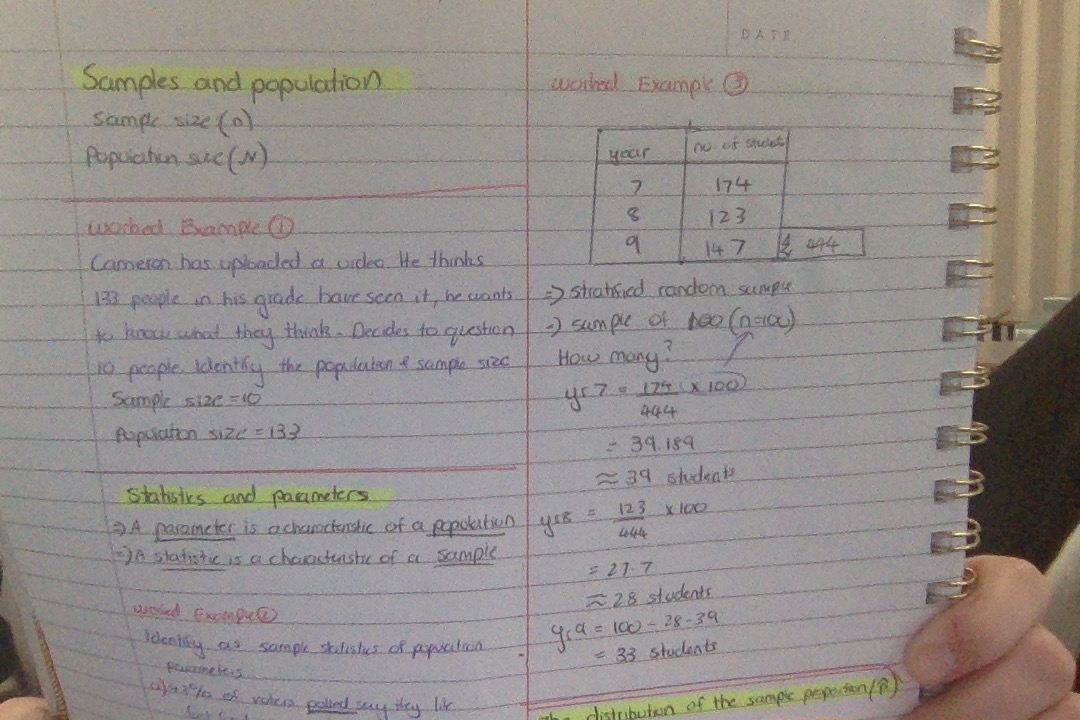 DATE
Samples and population
Sample size (n)
Population size (N)
Worked Example ①
Cameron has uploaded a video. He thinks
133 people in his grade have seen it, he wants
to know what they think. Decides to question
10 people. Identify the population & sample size
Sample size = 10
Population size = 133
Statistics and parameters
⇒ A parameter is a characteristic of a population
⇒ A statistic is a characteristic of a sample
Worked Example ②
Identify as sample statistics of population
parameters
a) 43% of voters polled say they like
Worked Example ③
year no. of students
7 174
8 123
9 147 444
⇒ stratified random sample
⇒ sample of 100 (n=100)
How many?
yr 7 = 174 (x 100)
444
= 39.189
≈ 39 students
yr 8 = 123 x 100
444
= 27.7
≈ 28 students
yr 9 = 100 - 28 - 39
= 33 students
The distribution of the sample proportion (p̂)